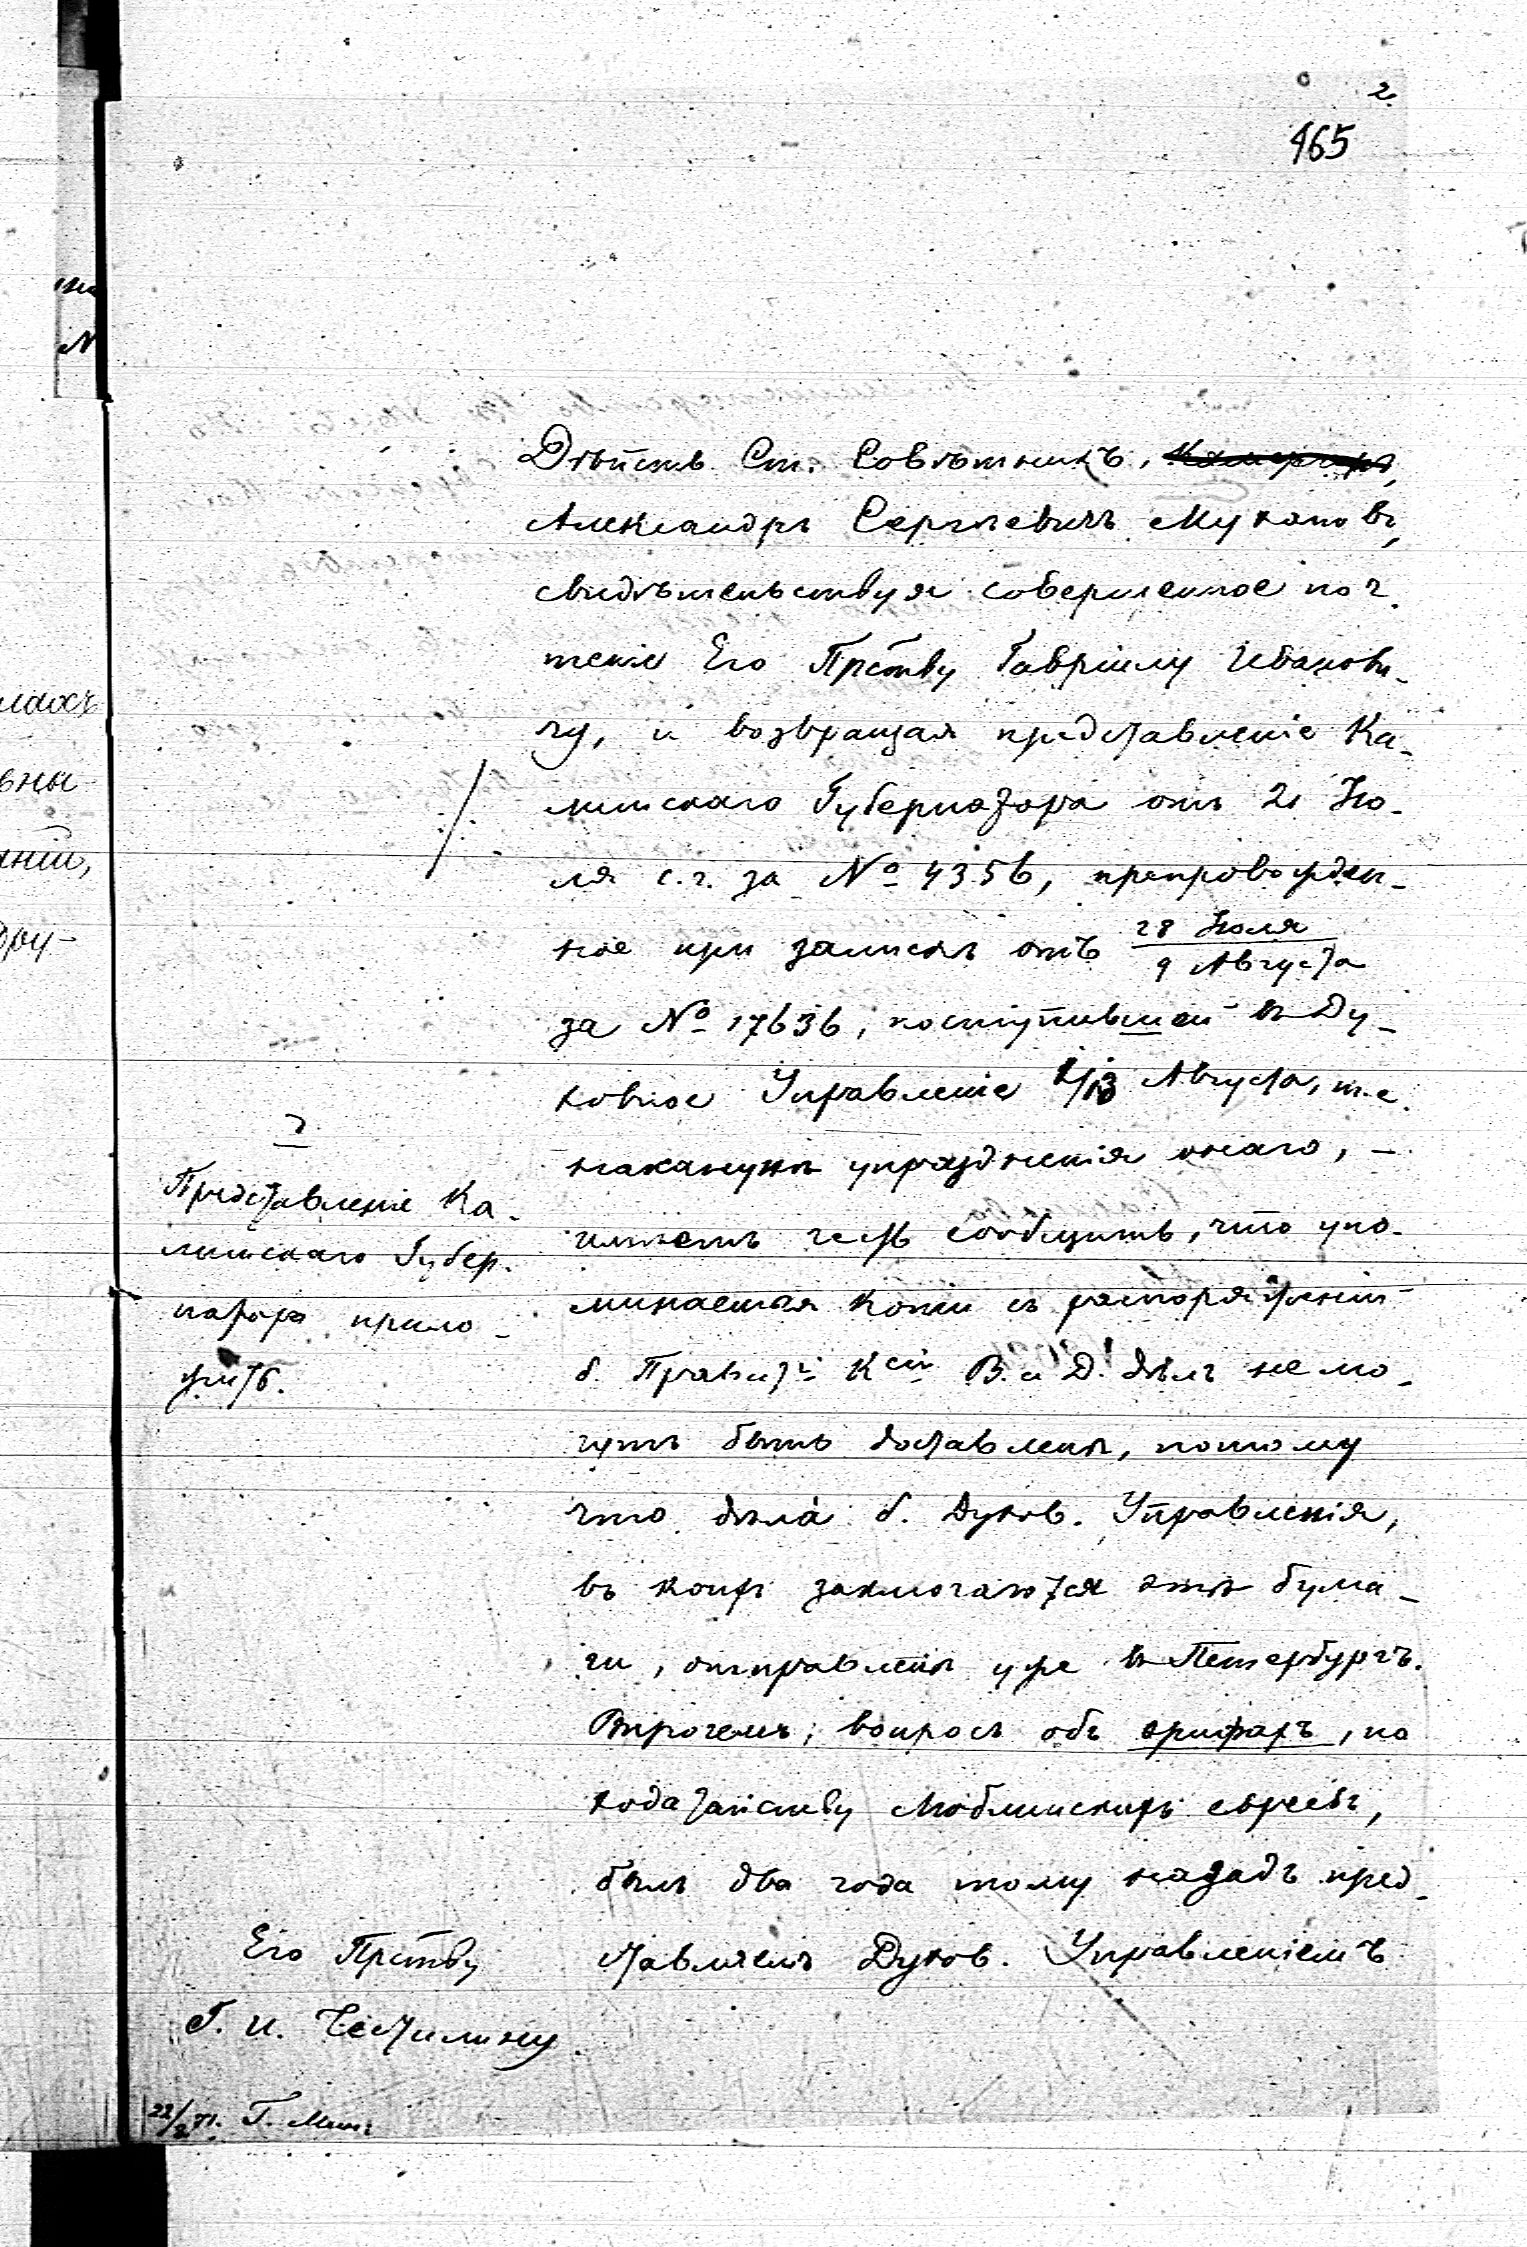 2
465
Дѣйств. Ст. Совѣтникъ, Камергеръ,
Александръ Сергѣевичъ Мухановъ,
свидѣтельствуя совершенное поч-
теніе Его Прству Гавріилу Иванови-
чу, и возвращая представленіе Ка-
лишскаго Губернатора отъ 21 Iю-
ля с.г. за № 4356, препровожден-
ное при запискѣ отъ 28 Iюля
9 Августа
за № 17636, поступившей въ Ду-
ховное Управленіе 1/13 Августа, т.е.
наканунѣ упраздненія онаго, –
имѣетъ честь сообщить, что упо-
минаемыя копіи съ распоряженій
б. Правит-й К-сіи В. и Д. дѣлъ не мо-
гутъ быть доставлены, потому
что дѣла б. Духов. Управленія,
въ коихъ заключаются эти бума-
ги, отправлены уже въ Петербургъ.
Впрочемъ, вопросъ объ эрифахъ, по
ходатайству Люблинскихъ евреевъ,
былъ два года тому назадъ пред-
ставляемъ Духов. Управленіемъ
2.
Представленіе Ка-
лишскаго Губер-
натора прило-
жить.
Его Прству
Г. И.
22/2 71. Г.
махъ
вны
аній,
дру-
на
N